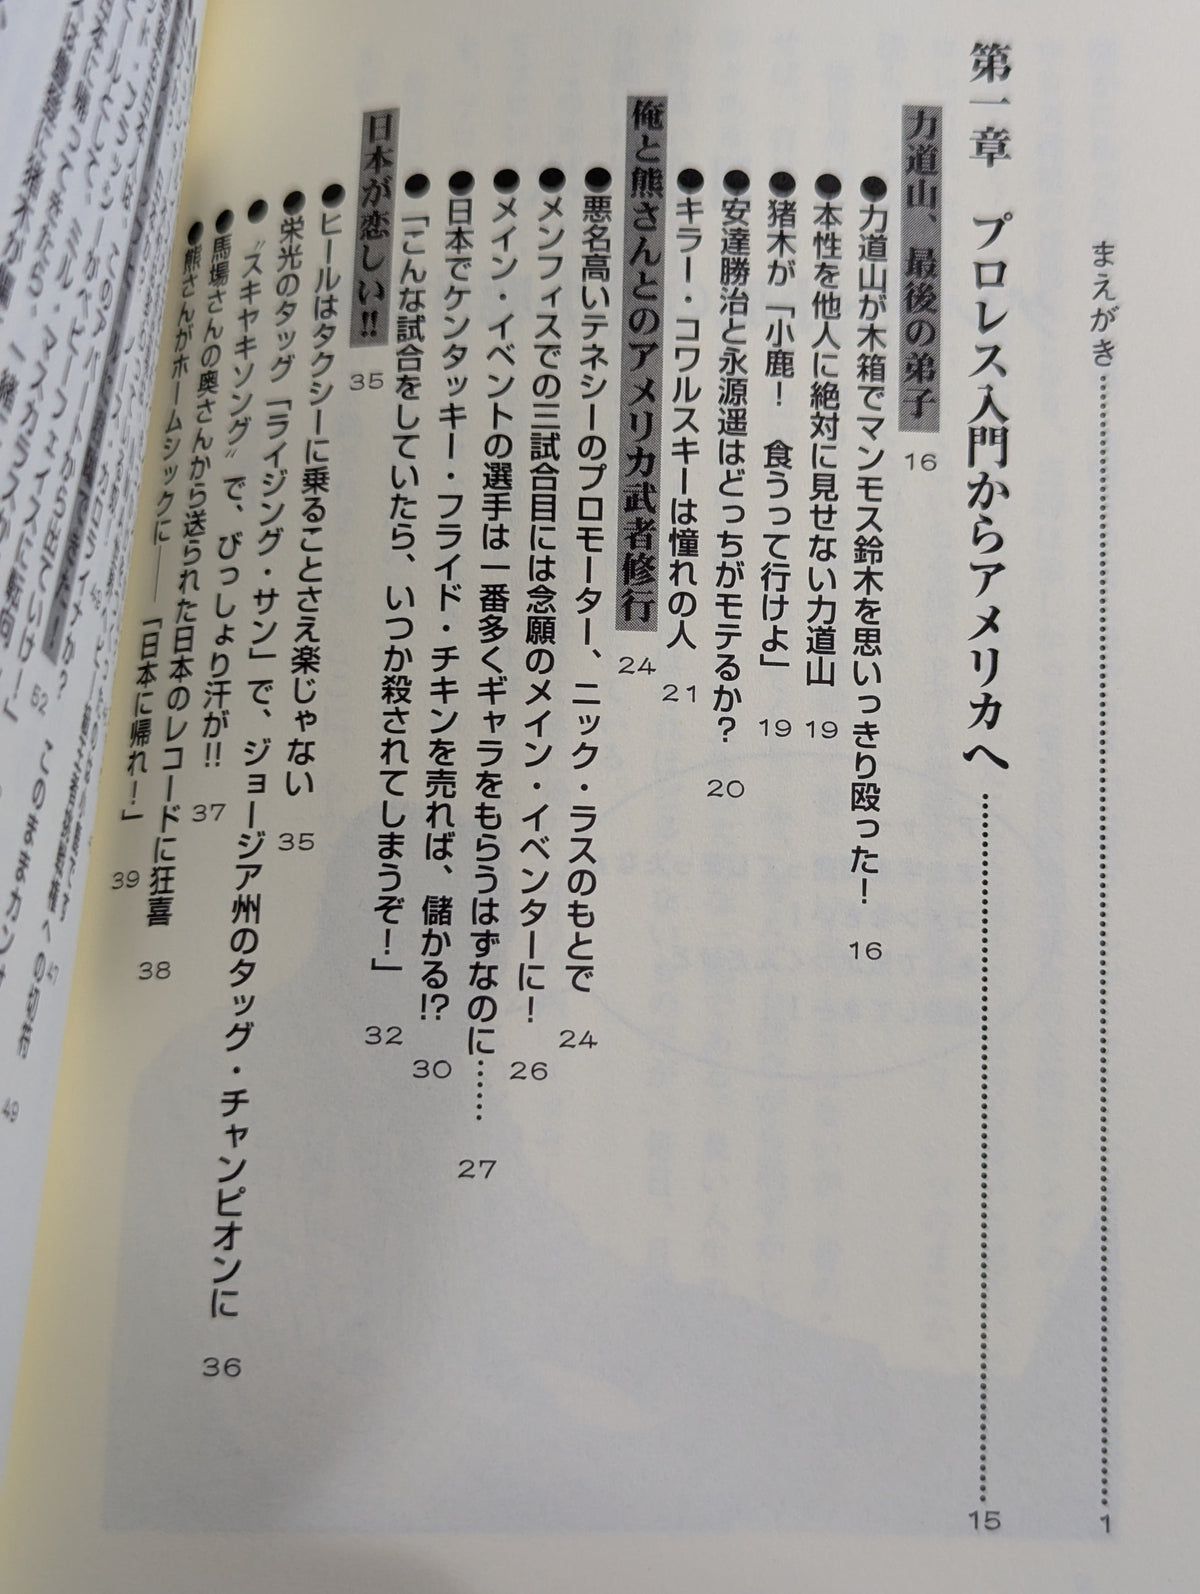 まえがき……………………1
第一章　プロレス入門からアメリカへ……………………15
力道山、最後の弟子　16
●力道山が木箱でマンモス鈴木を思いっきり殴った！　16
●本性を他人に絶対に見せない力道山　19
●猪木が「小鹿！　食うって行けよ」　19
●安達勝治と永源遥はどっちがモテるか？　20
●キラー・コワルスキーは憧れの人　21
俺と熊さんとのアメリカ武者修行　24
●悪名高いテネシーのプロモーター、ニック・ラスのもとで　24
●メンフィスでの三試合目には念願のメイン・イベンターに！　26
●メイン・イベントの選手は一番多くギャラをもらうはずなのに……　27
●日本でケンタッキー・フライド・チキンを売れば、儲かる!?　30
●「こんな試合をしていたら、いつか殺されてしまうぞ！」　32
日本が恋しい!!　35
●ヒールはタクシーに乗ることさえ楽じゃない　35
●栄光のタッグ「ライジング・サン」で、ジョージア州のタッグ・チャンピオンに　36
●〝スキヤキソング〟で、びっしょり汗が!!　37
●馬場さんの奥さんから送られた日本のレコードに狂喜　38
●熊さんがホームシックに――「日本に帰れ！」　39